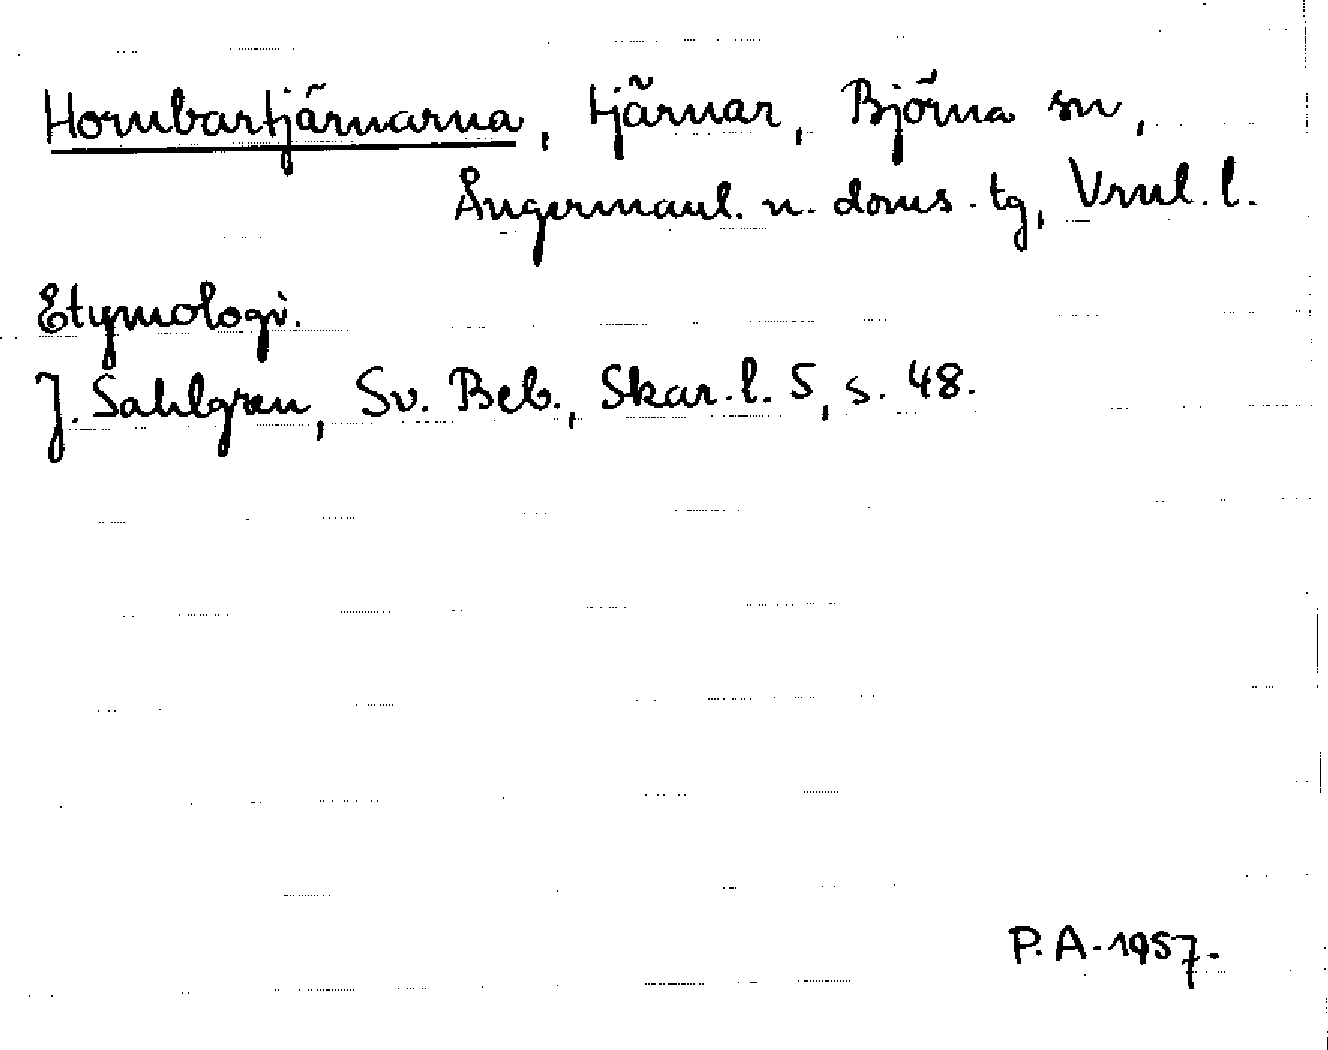 Hornbartjärnarna, tjärnar, Björna sn,
Ångermanl. n. doms. tg, Vrnl. l.
Etymologi.
J. Sahlgren, Sv. Beb., Skar. l. 5, s. 48.
P. A. 1957.